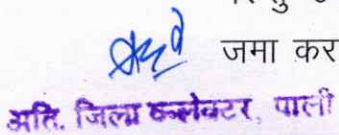 जमा कर
अति. जिला कलेक्टर, पाली